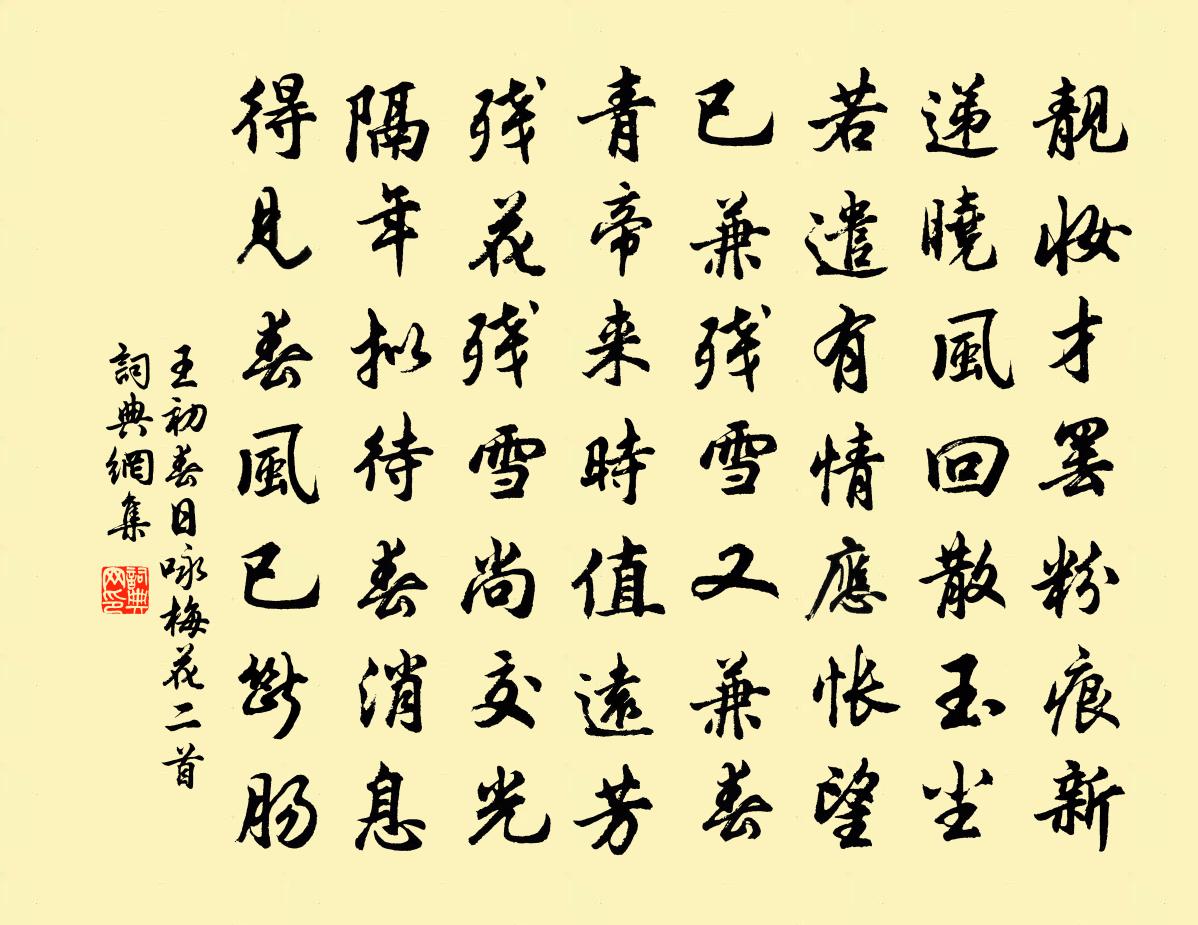 靚妝才罷粉痕新
递曉風回散玉尘
若遣有情應悵望
已兼残雪又兼春
青帝来時值遠芳
残花残雪尚交光
隔年拟待春消息
得見春風已斷腸
王初春日咏梅花二首
詞典網集
詞典網印